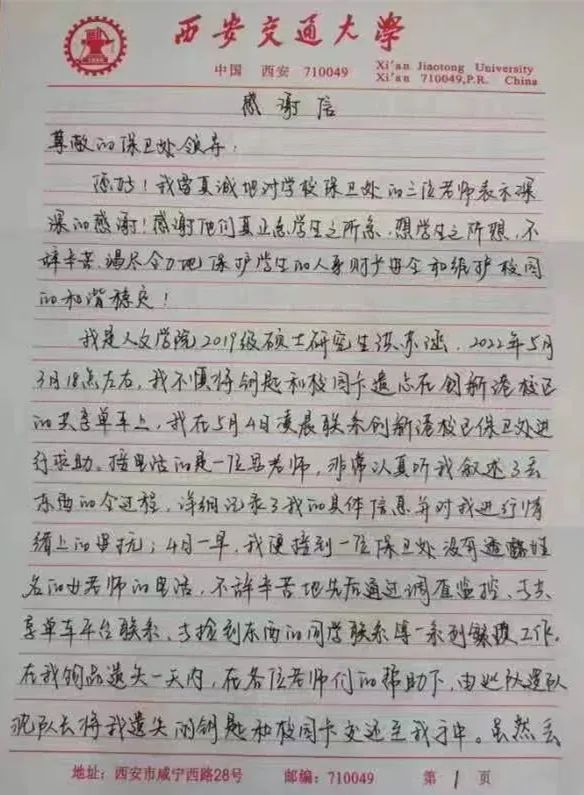 西安交通大学
中国 西安 710049
Xi'an Jiaotong University
Xi'an 710049,P.R. China
感谢信
尊敬的保卫处领导：
您好！我要真诚地对学校保卫处的三位老师表示深
深的感谢！感谢他们真正急学生之所急，想学生之所想，不
辞辛苦、竭尽全力地保护学生的人身财产安全和维护校园
的和谐稳定！
我是人文学院2019级硕士研究生 ，2022年5月
3月18点左右，我不慎将钥匙和校园卡遗忘在创新港校区
的共享单车上，我在5月4日凌晨联系创新港校区保卫处进
行求助。接电话的是一位男老师，非常认真听我叙述了丢
东西的全过程，详细记录了我的具体信息并对我进行情
绪上的安抚；4日一早，我便接到一位保卫处没有透露姓
名的女老师的电话，不辞辛苦地先后通过调查监控、与共
享单车平台联系、与捡到东西的同学联系等一系列繁琐工作。
在我物品遗失一天内，在各位老师们的帮助下，由 队
队长将我遗失的钥匙和校园卡交还至我手中。虽然丢
地址：西安市咸宁西路28号 邮编：710049 第 1 页